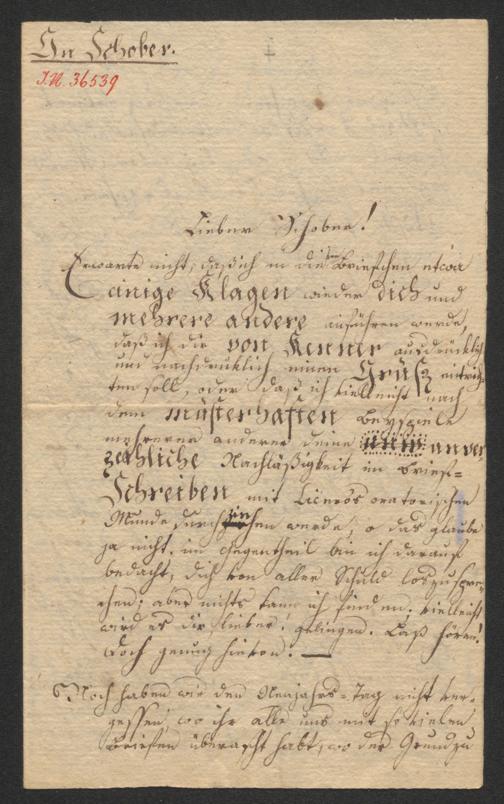 An Schober.
J.N. 36539
Lieber Schober!
Erwarte nicht, daß ich in dießem Briefchen etwa
einige Klagen wieder dich und
mehrere andere anführen werde,
daß ich dir von Kenner ausdrücklich
und nachdrücklich einen Gruß entrich-
ten soll, oder daß ich vielleicht nach
dem musterhaften Beyspiele
mehrerer anderer deine unver
zeihliche Nachläßigkeit im Brief-
Schreiben mit Ciceros oratorischen
Munde durchziehen werde, o das glaube
ja nicht, im Gegentheil bin ich darauf
bedacht, dich von aller Schuld loszuspre-
chen; aber nichts kann ich finden. vielleicht
wird es dir lieber! gelingen. Laß hören!
Doch genug hievon. —
Noch haben wir den Neujahrs-Tag nicht ver-
gessen, wo ihr alle uns mit so vielen
Briefen überascht habt, wo der Grund zu